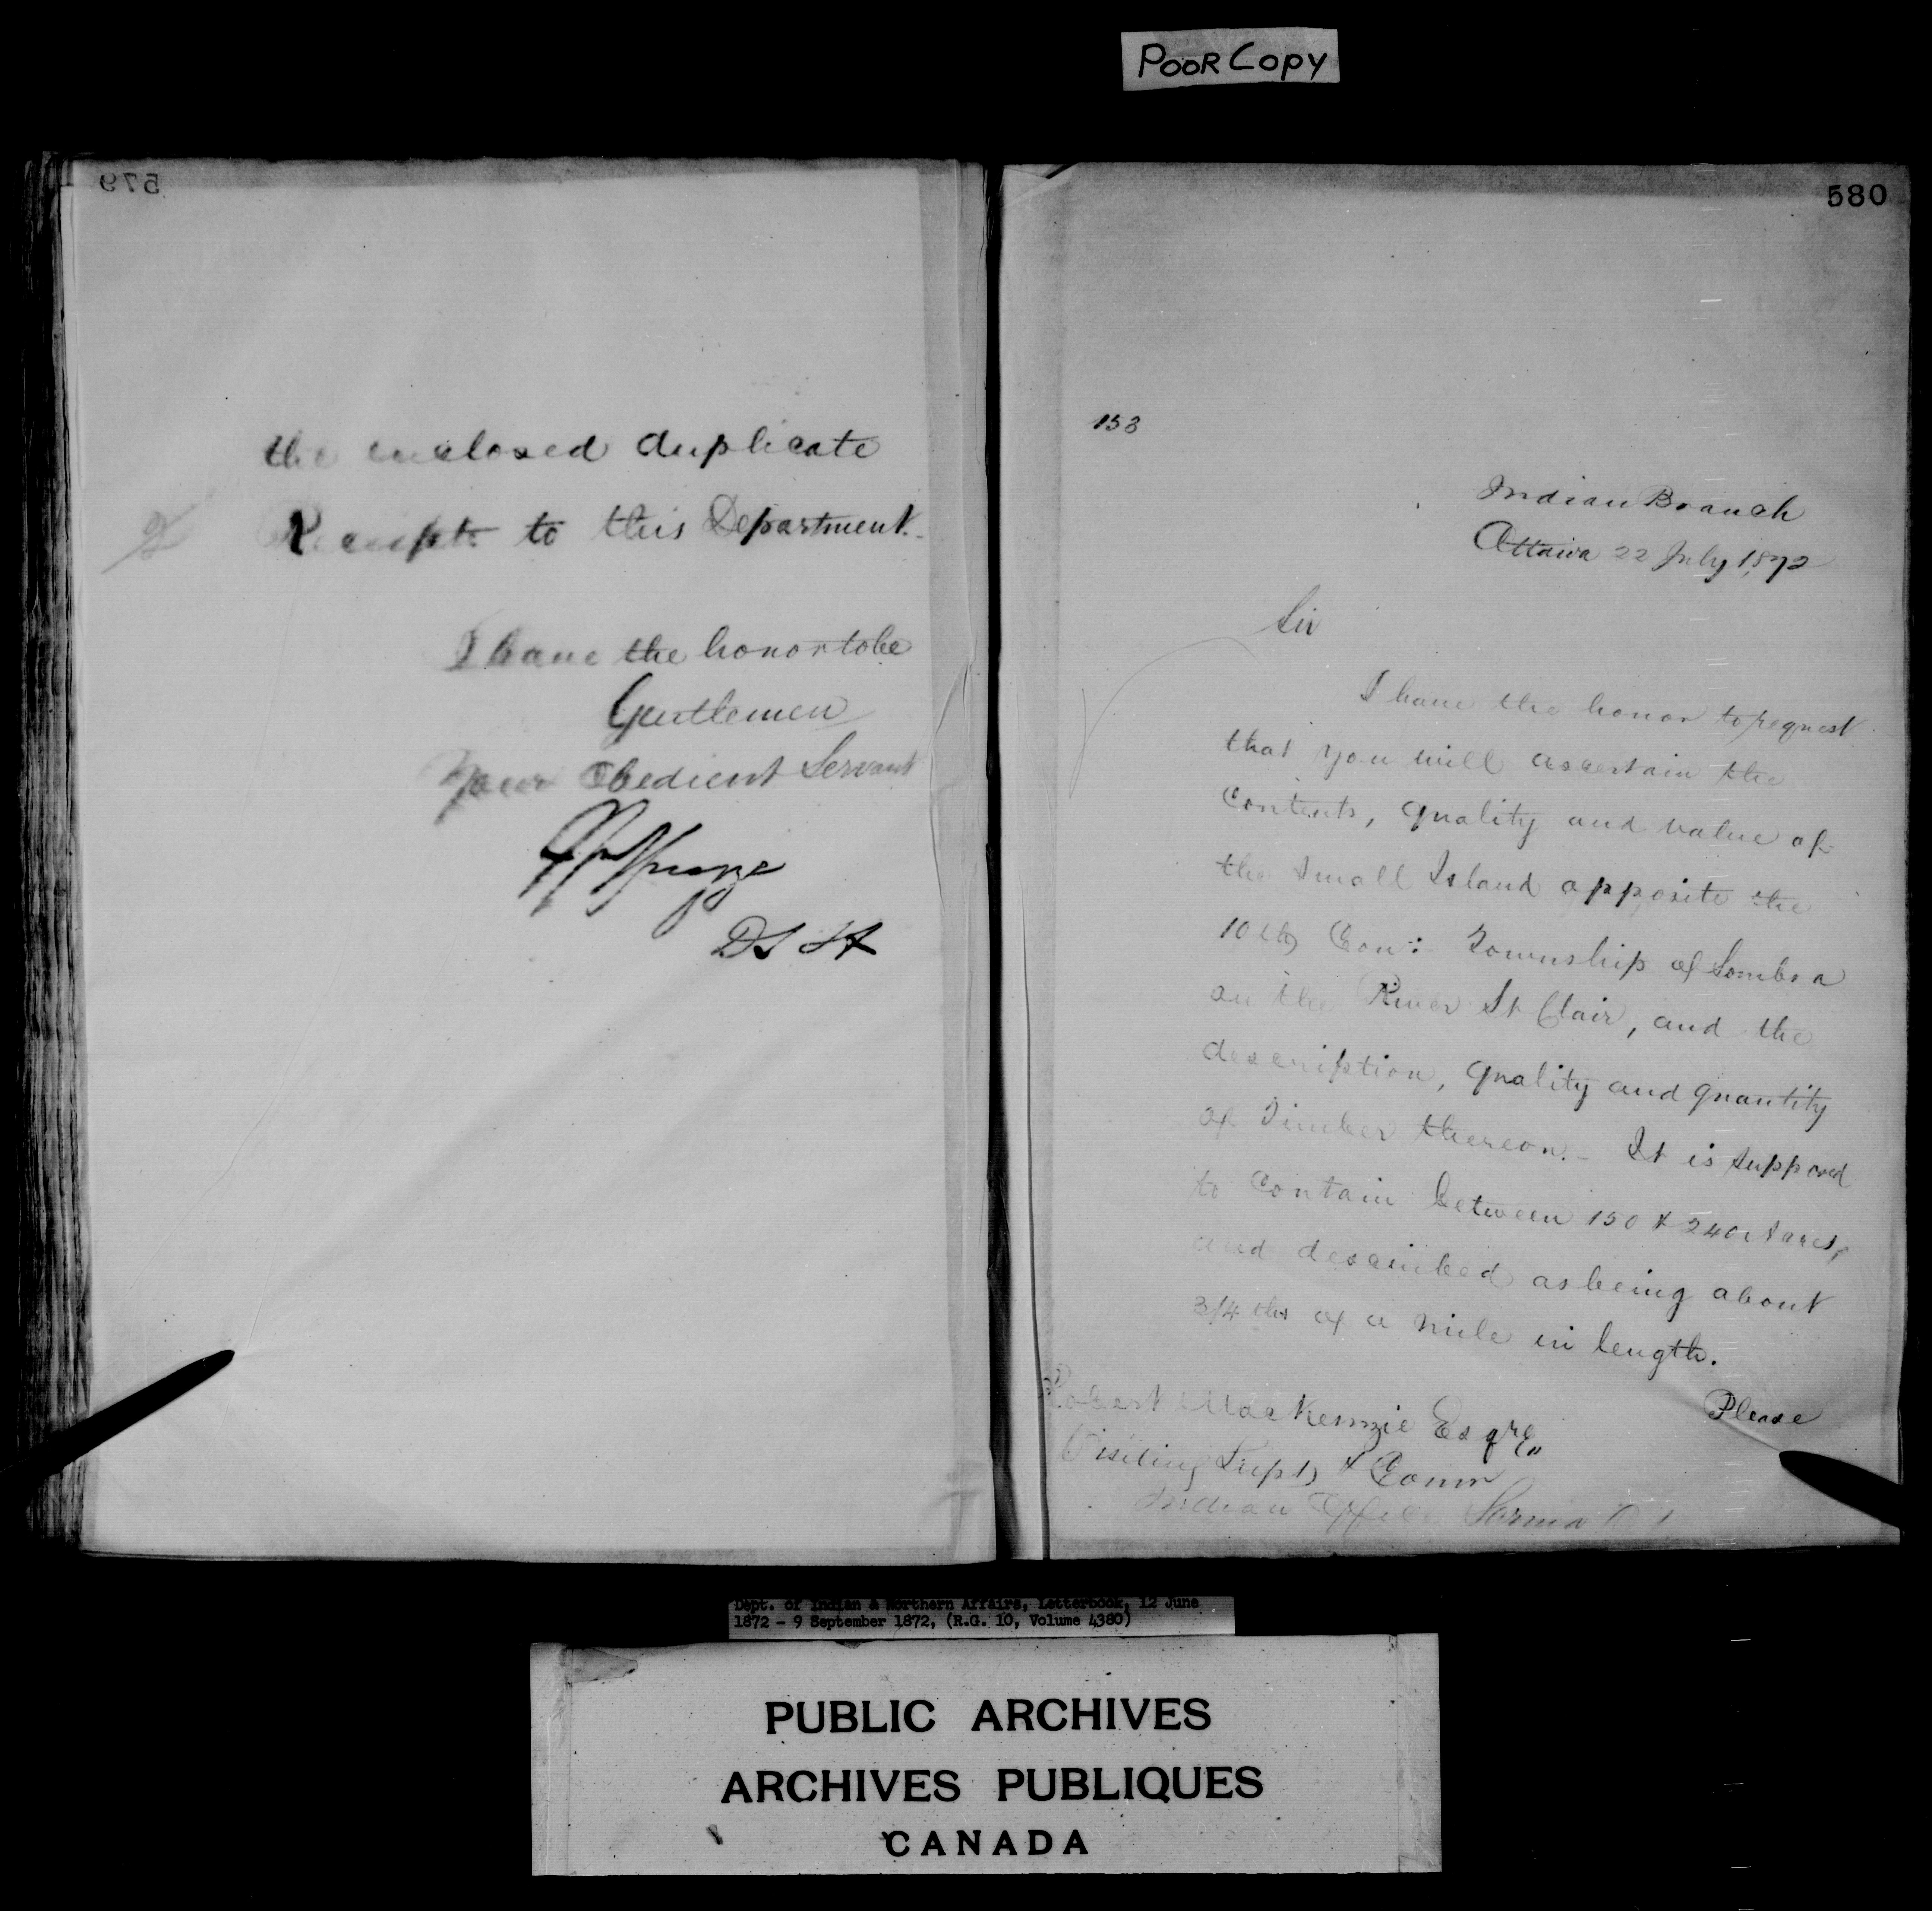 POOR COPY
579
the enclosed duplicate
Receipts to this Department.
I have the honor to be
Gentlemen
Your Obedient Servant
580
153
Indian Branch
Ottawa 22 July 1872
Sir
I have the honor to request
that you will ascertain the
Contents, quality and value of
the Small Island opposite the
10th Con: Township of Sombra
on the River St Clair, and the
description, quality and quantity
of Timber thereon.- It is supposed
to contain between 150 & 240 acres,
and described as being about
3/4 ths of a mile in length.
Please
Robert MacKenzie Esqre
Visiting Supt & Comr
Indian Office Sarnia
Dept. of Indian & Northern Affairs, Letterbook, 12 June
1872 - 9 September 1872, (R.G. 10, Volume 4380)
PUBLIC ARCHIVES
ARCHIVES PUBLIQUES
CANADA